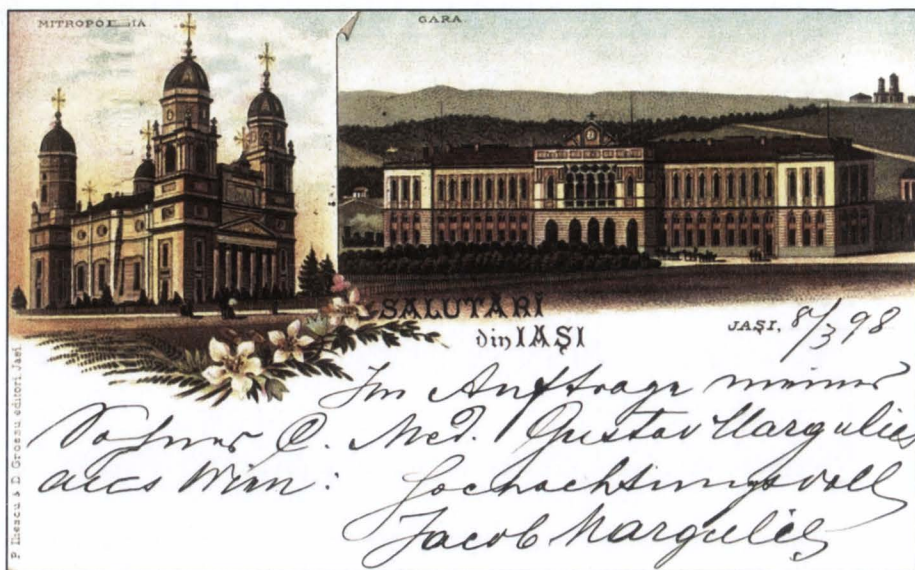 MITROPOLIA
GARA.
SALUTĂRI
din IAŞI
JAŞI, 8/3 98
Im Auftrage meines
Sohnes C. Med. Gustav Margulies
aus Wien:
Hochachtungsvoll
Jacob Margulies
P. Ilnescu & D. Grossu editori Jasi